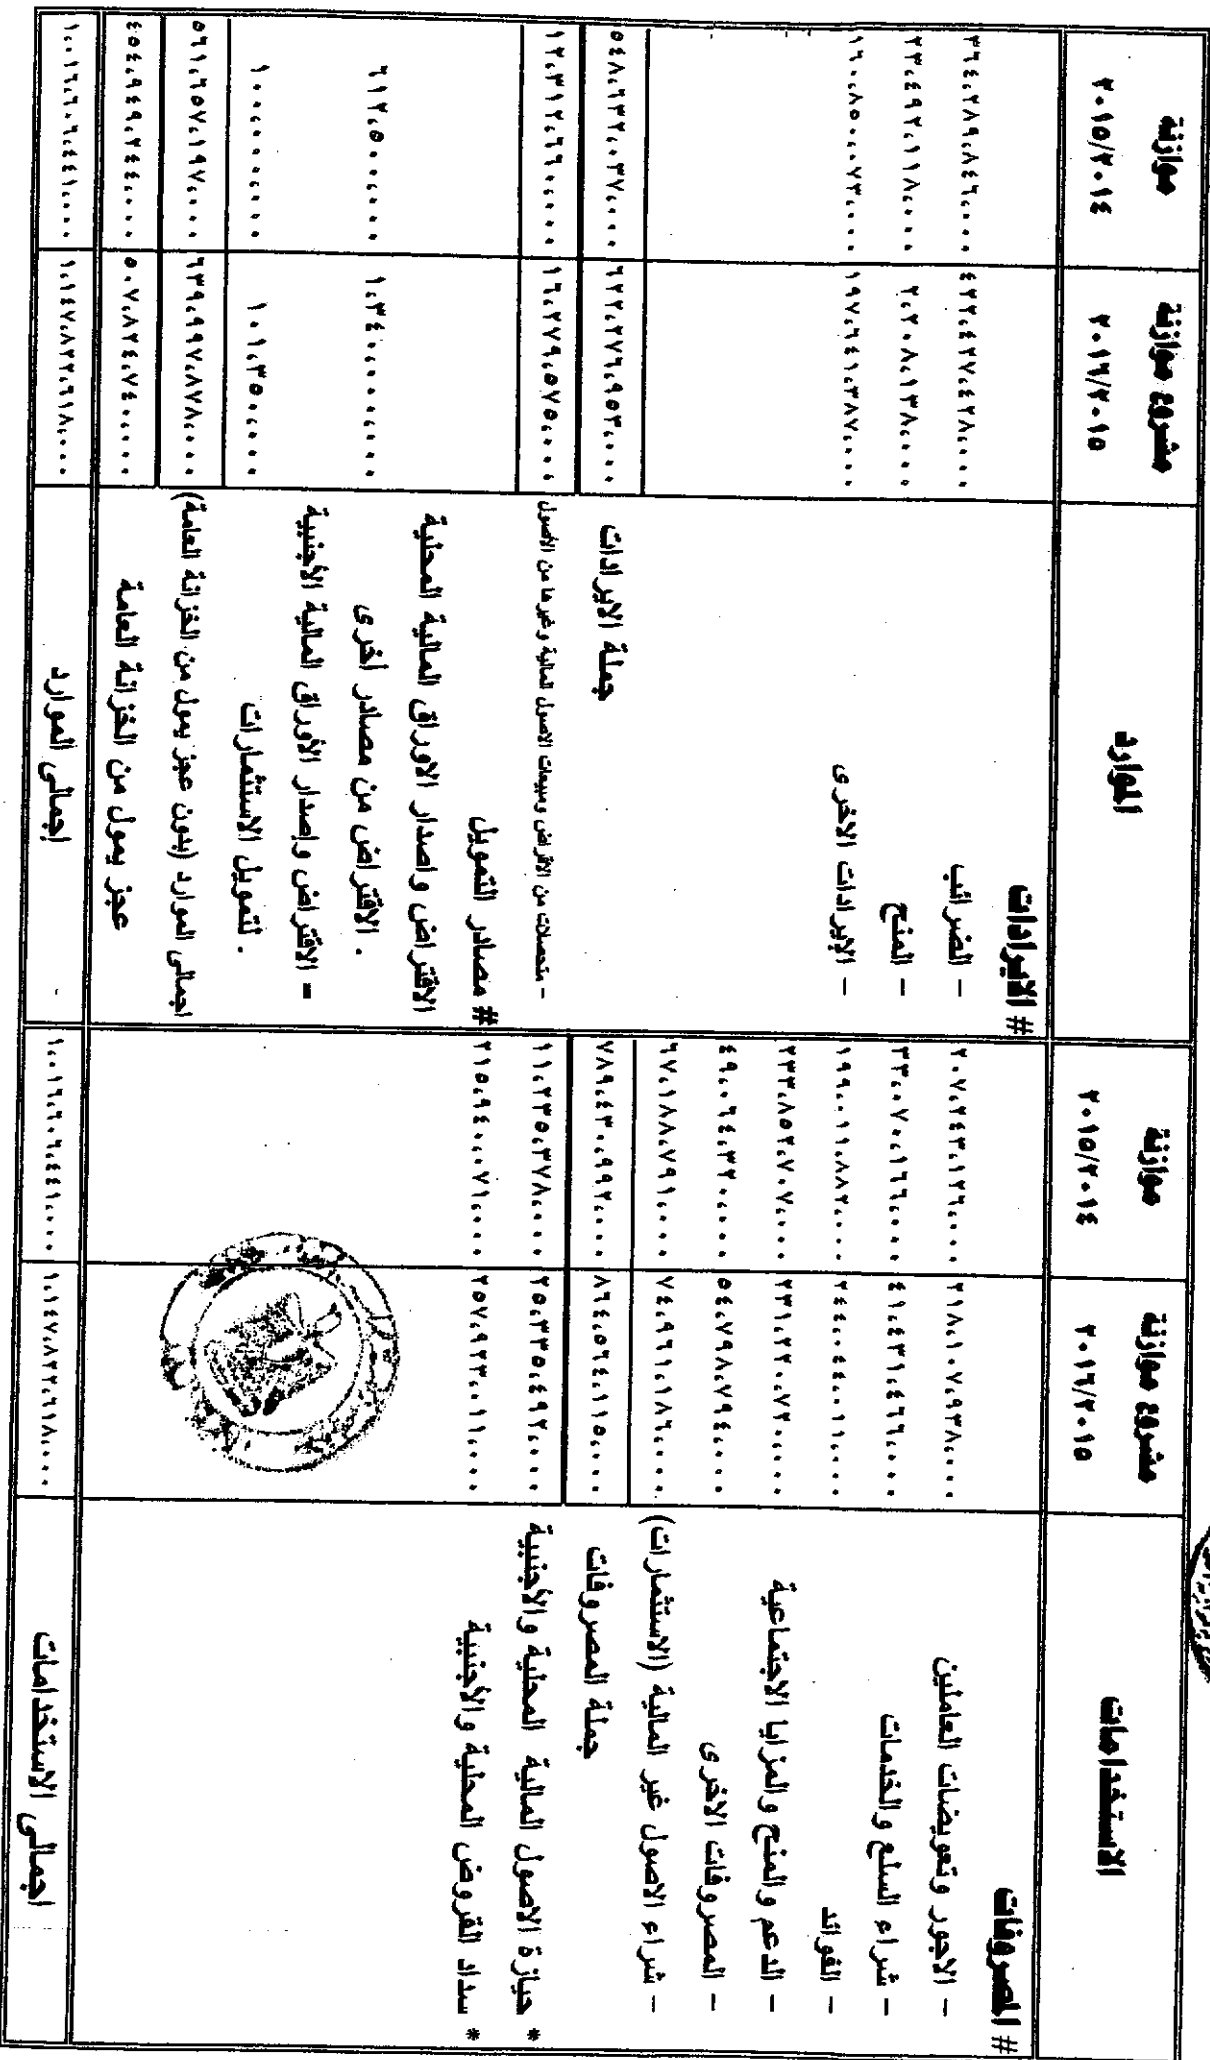 الاستخدامات	مشروع موازنة ٢٠١٦/٢٠١٥	موازنة ٢٠١٥/٢٠١٤	الموارد	مشروع موازنة ٢٠١٦/٢٠١٥	موازنة ٢٠١٥/٢٠١٤
# المصروفات	# الايرادات
– الاجور وتعويضات العاملين	٢١٨،١٠٧،٩٣٨،٠٠٠	٢٠٧،٢٤٣،١٢٦،٠٠٠	– الضرائب	٤٢٢،٤٢٧،٤٢٨،٠٠٠	٣٦٤،٢٨٩،٨٤٦،٠٠٠
– شراء السلع والخدمات	٤١،٤٣١،٤٦٦،٠٠٠	٣٣،٠٧٠،١٦٦،٠٠٠	– المنح	٢،٢٠٨،١٣٨،٠٠٠	٢٣،٤٩٢،١١٨،٠٠٠
– الفوائد	٢٤٤،٠٤٤،٠١١،٠٠٠	١٩٩،٠١١،٨٨٢،٠٠٠	– الإيرادات الاخرى	١٩٧،٦٤١،٣٨٧،٠٠٠	١٦٠،٨٥٠،٠٧٣،٠٠٠
– الدعم والمنح والمزايا الاجتماعية	٢٣١،٢٢٠،٧٢٠،٠٠٠	٢٣٣،٨٥٢،٧٠٧،٠٠٠
– المصروفات الاخرى	٥٤،٧٩٨،٧٩٤،٠٠٠	٤٩،٠٦٤،٣٢٠،٠٠٠
– شراء الاصول غير المالية (الاستثمارات)	٧٤،٩٦١،١٨٦،٠٠٠	٦٧،١٨٨،٧٩١،٠٠٠
جملة المصروفات	٨٦٤،٥٦٤،١١٥،٠٠٠	٧٨٩،٤٣٠،٩٩٢،٠٠٠	جملة الايرادات	٦٢٢،٢٧٦،٩٥٣،٠٠٠	٥٤٨،٦٣٢،٠٣٧،٠٠٠
* حيازة الاصول المالية المحلية والأجنبية	٢٥،٣٣٥،٤٩٢،٠٠٠	١١،٢٣٥،٣٧٨،٠٠٠	– متحصلات من الاقراض ومبيعات الاصول المالية وغيرها من الأصول	١٦،٢٧٩،٥٧٥،٠٠٠	١٢،٣١٢،٦٦٠،٠٠٠
* سداد القروض المحلية والأجنبية	٢٥٧،٩٢٣،٠١١،٠٠٠	٢١٥،٩٤٠،٠٧١،٠٠٠	# مصادر التمويل
الاقتراض واصدار الاوراق المالية المحلية
. الاقتراض من مصادر أخرى	١،٣٤٠،٠٠٠،٠٠٠	٦١٢،٥٠٠،٠٠٠
– الاقتراض وإصدار الأوراق المالية الأجنبية
. لتمويل الاستثمارات	١٠١،٣٥٠،٠٠٠	١٠٠،٠٠٠،٠٠٠
اجمالى الموارد (بدون عجز يمول من الخزانة العامة)	٦٣٩،٩٩٧،٨٧٨،٠٠٠	٥٦١،٦٥٧،١٩٧،٠٠٠
عجز يمول من الخزانة العامة	٥٠٧،٨٢٤،٧٤٠،٠٠٠	٤٥٤،٩٤٩،٢٤٤،٠٠٠
اجمالى الاستخدامات	١،١٤٧،٨٢٢،٦١٨،٠٠٠	١،٠١٦،٦٠٦،٤٤١،٠٠٠	إجمالى الموارد	١،١٤٧،٨٢٢،٦١٨،٠٠٠	١،٠١٦،٦٠٦،٤٤١،٠٠٠